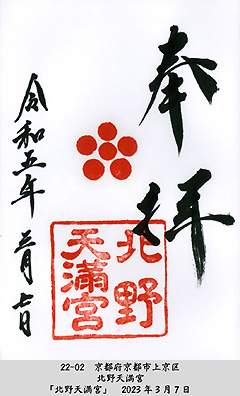 奉拝
北野
天満宮
令和五年 三月七日
22-02 京都府京都市上京区
北野天満宮
「北野天満宮」 2023年3月7日